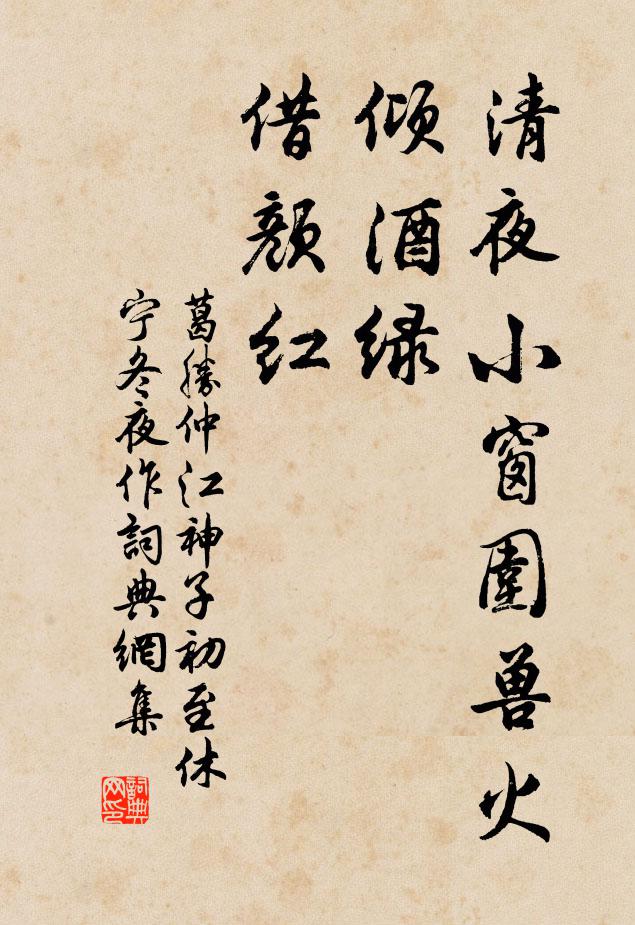 清夜小窗圍兽火
倾酒绿
借颜红
葛勝仲江神子初至休
宁冬夜作詞典網集
詞典
网印